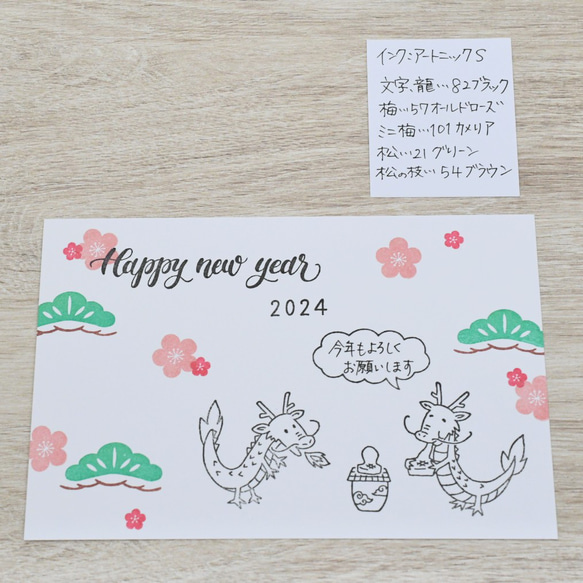 インク:アートニックS
文字、龍…82ブラック
梅…57オールドローズ
ミニ梅…101カメリア
松…21グリーン
松の枝…54ブラウン
Happy new year
2024
今年もよろしく
お願いします